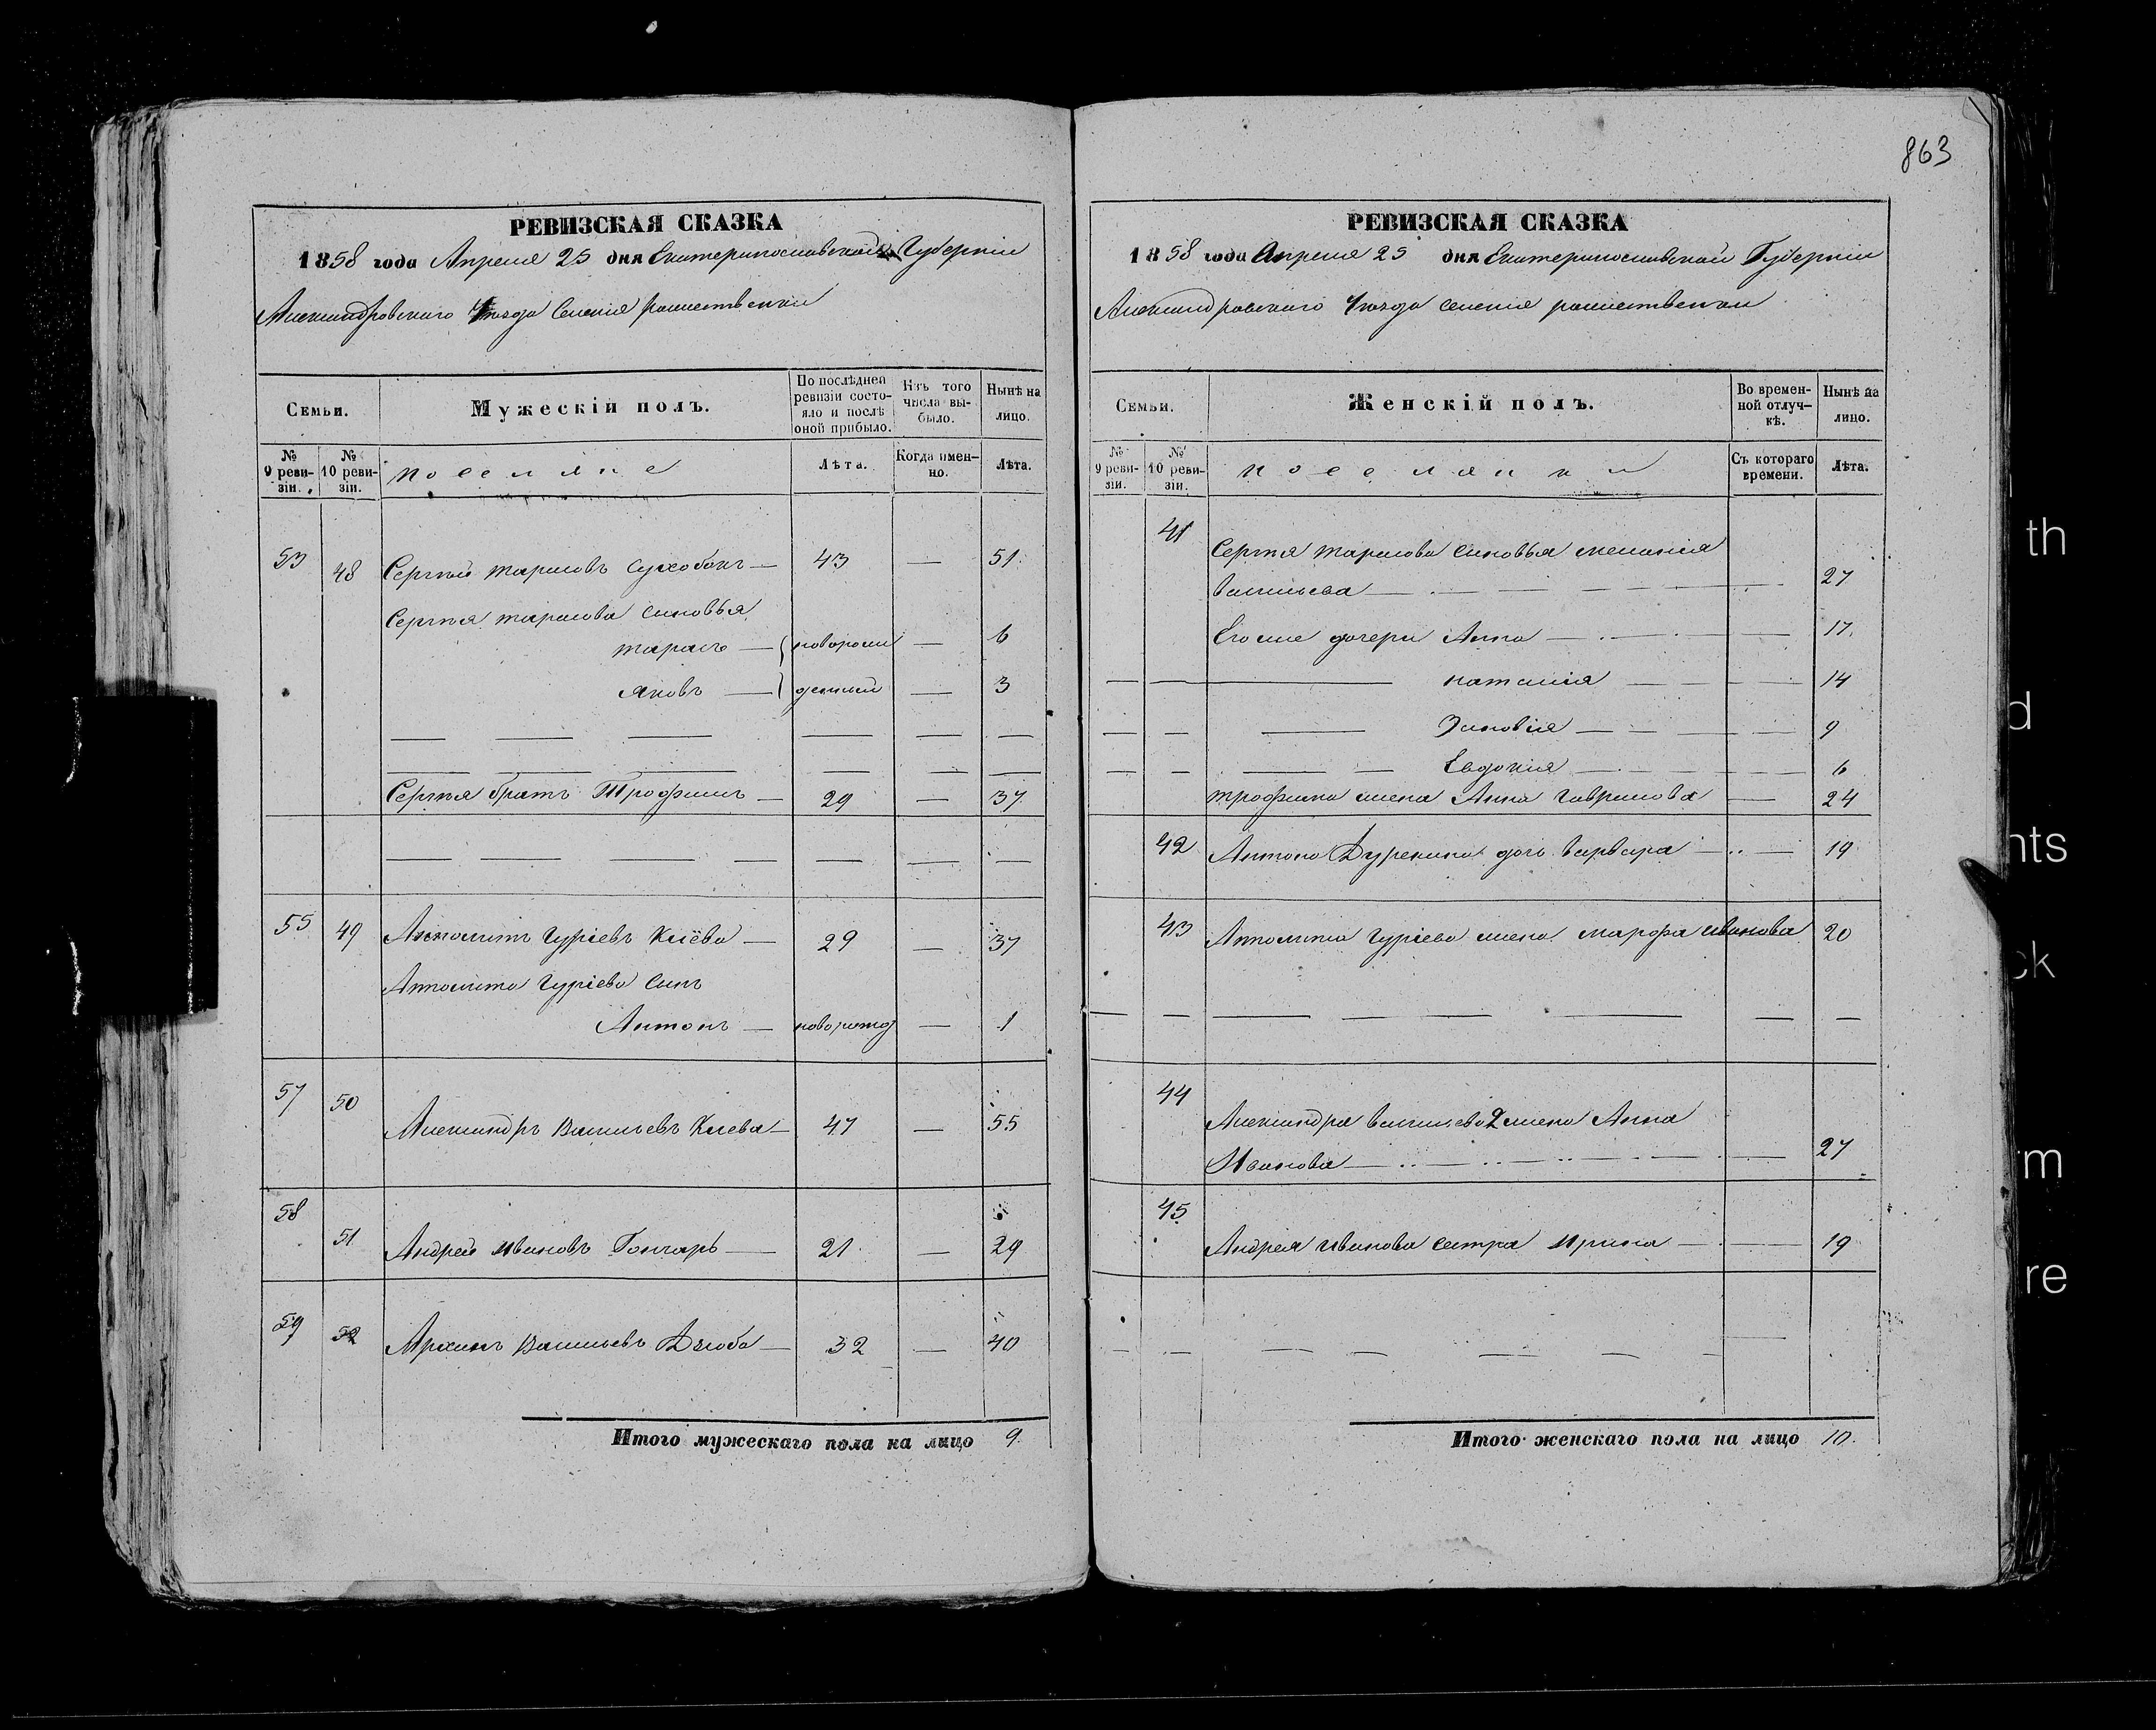 863
РЕВИЗСКАЯ СКАЗКА
1858 года Апреля 25 дня Екатеринославской Губерніи
Александровскаго Уѣзда Селенія
Семьи.
Мужескій полъ.
По послѣдней ревизіи состояло и послѣ оной прибыло.
Изъ того числа выбыло.
Нынѣ на лицо.
№ 9 ревизіи.
№ 10 ревизіи.
поселяне
Лѣта.
Когда именно.
Лѣта.
53 48 Сергѣй Тарасовъ Сухобокъ — 43 — 51.
Сергѣя Тарасова Сыновья
Тарасъ — новорож — 6
Яковъ — денные — 3
Сергѣя братъ Трофимъ — 29 — 37
55 49 Гурíевъ — 29 — 37
Гурíева Сынъ
Антонъ — — 1
57 50 Александръ Васильевъ — 47 — 55
58 51 Андрей Ивановъ Гончаръ — 21 — 29
59 52 Архипъ Васильевъ Дзюба — 32 — 40
Итого мужескаго пола на лицо 9.
РЕВИЗСКАЯ СКАЗКА
1858 года Апреля 25 дня Екатеринославской Губерніи
Александровскаго Уѣзда селенія
Семьи.
Женскій полъ.
Во временной отлучкѣ.
Нынѣ на лицо.
№ 9 ревизіи.
№ 10 ревизіи.
поселянки
Съ котораго времени.
Лѣта.
41 Сергѣя Тарасова
Васильева — 27
Его же дочери Анна — 17.
Наталія — 14
Зиновія — 9
Евдокія — 6
Трофима жена Анна Гаврилова — 24
42 Антона дочь Варвара — 19
43 Гурíева жена Марфа Иванова 20
44 Александра Васильева 2 жена Анна
Иванова — 27
45 Андрея Иванова сестра Ирина — 19
Итого женскаго пола на лицо 10.
th
d
nts
ck
rm
re